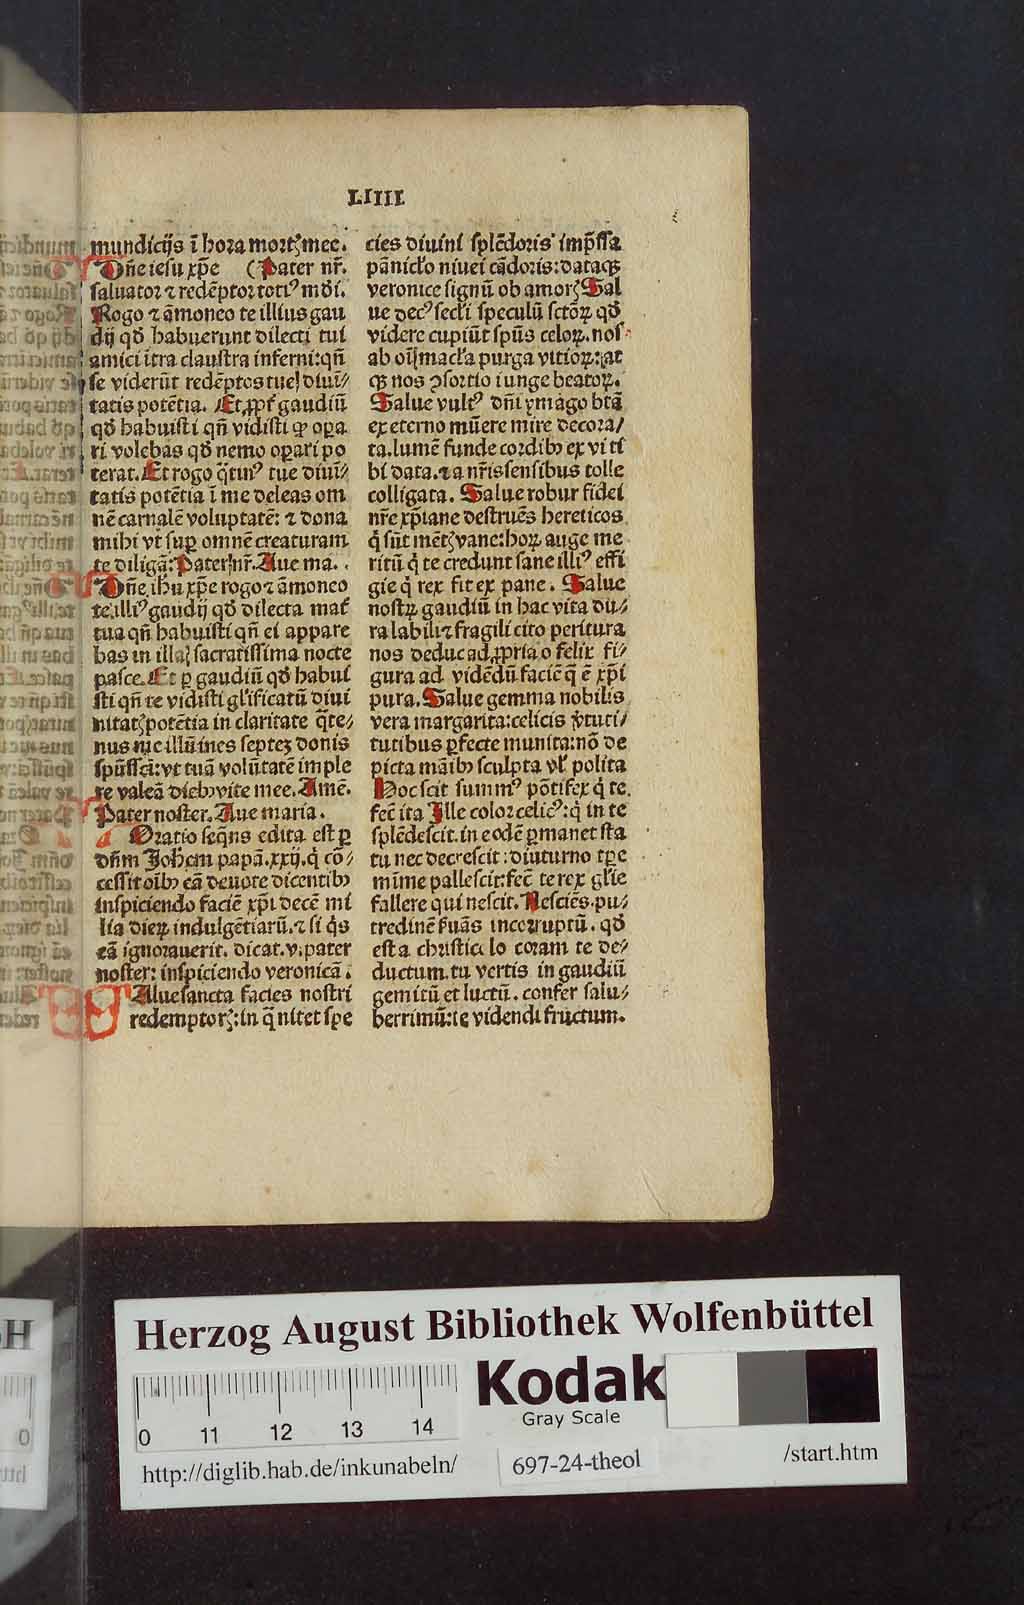 LIIII
mundicijs ī hora mortꝫ mee.
Dn̄e iesu xp̄e (Pater nr̄.
saluator ⁊ redēptor totiꝰ mūdi.
Rogo ⁊ āmoneo te illius gau
dij qd̄ habuerunt dilecti tui
amici ītra claustra inferni: qn̄
se viderūt redēptos tue diui⸗
tatis potētia. Et ꝓpt̄ gaudiū
qd̄ habuisti qn̄ vidisti ꝙ oꝑa
ri volebas qd̄ nemo oꝑari po
terat. Et rogo q̄tinꝰ tue diuī⸗
tatis potētia ī me deleas om
nē carnalē voluptatē: ⁊ dona
mihi vt suꝑ omnē creaturam
te diligā: Pater nr̄. Aue ma.
Dn̄e ihū xp̄e rogo ⁊ āmoneo
te illiꝰ gaudij qd̄ dilecta mat̄
tua qn̄ habuisti qn̄ ei appare
bas in illa sacratissima nocte
pasce. Et ꝑ gaudiū qd̄ habui
sti qn̄ te vidisti gl̄ificatū diui
nitatꝫ potētia in claritate q̄te⸗
nus me illūines septeꝫ donis
spūssc̄i: vt tuā volūtatē imple
re valeā diebꝰ vite mee. Amē.
Pater noster. Aue maria.
Oratio seq̄ns edita est ꝑ
dn̄m Joh̄em papā. xxij. q̇ cō⸗
cessit oībꝰ eā deuote dicentibꝰ
inspiciendo faciē xp̄i decē mi
lia dieꝝ indulgētiarū. ⁊ si q̇s
eā ignorauerit. dicat. v. pater
noster: inspiciendo veronicā.
Alue sancta facies nostri
redemptorꝫ: in q̄ nitet spe
cies diuini splēdoris imp̄ssa
pānicl̄o niuei cādoris: dataqꝫ
veronice signū ob amorꝫ Sal
ue decꝰ secl̄i speculū sctōꝝ qd̄
videre cupiūt spūs celoꝝ. nos
ab oī macl̄a purga vitioꝝ: at
qꝫ nos ꝯsortio iunge beatoꝝ.
Salue vultꝰ dn̄i ymago btā
ex eterno mūere mire decora/
ta. lumē funde cordibꝰ ex vi ti
bi data. ⁊ a nr̄is sensibus tolle
colligata. Salue robur fidei
nr̄e xp̄iane destruēs hereticos
q̇ sūt mētꝫ vane: hoꝝ auge me
ritū q̇ te credunt sane illiꝰ effi
gie q̇ rex fit ex pane. Salue
nostꝝ gaudiū in hac vita du⸗
ra labili ⁊ fragili cito peritura
nos deduc ad ꝓpria o felix fi⸗
gura ad vidēdū faciē q̄ ē xp̄i
pura. Salue gemma nobilis
vera margarita: celicis v̄tuti/
tutibus ꝑfecte munita: nō de
picta māibꝰ sculpta vl̄ polita
Hoc scit summꝰ pōtifex q̇ te.
fec̄ ita Ille color celicꝰ: q̇ in te
splēdescit. in eodē ꝑmanet sta
tu nec decrescit: diuturno tp̄e
mīme pallescit: fec̄ te rex gl̄ie
fallere qui nescit. Nesciēs pu⸗
tredinē s̄uās incorruptū. qd̄
esta christicl̄o coram te de⸗
ductum. tu vertis in gaudiū
gemitū et luctū. confer salu⸗
berrimū: te videndi fructum.
Herzog August Bibliothek Wolfenbüttel
Kodak
Gray Scale
0 11 12 13 14
http://diglib.hab.de/inkunabeln/
697-24-theol
/start.htm